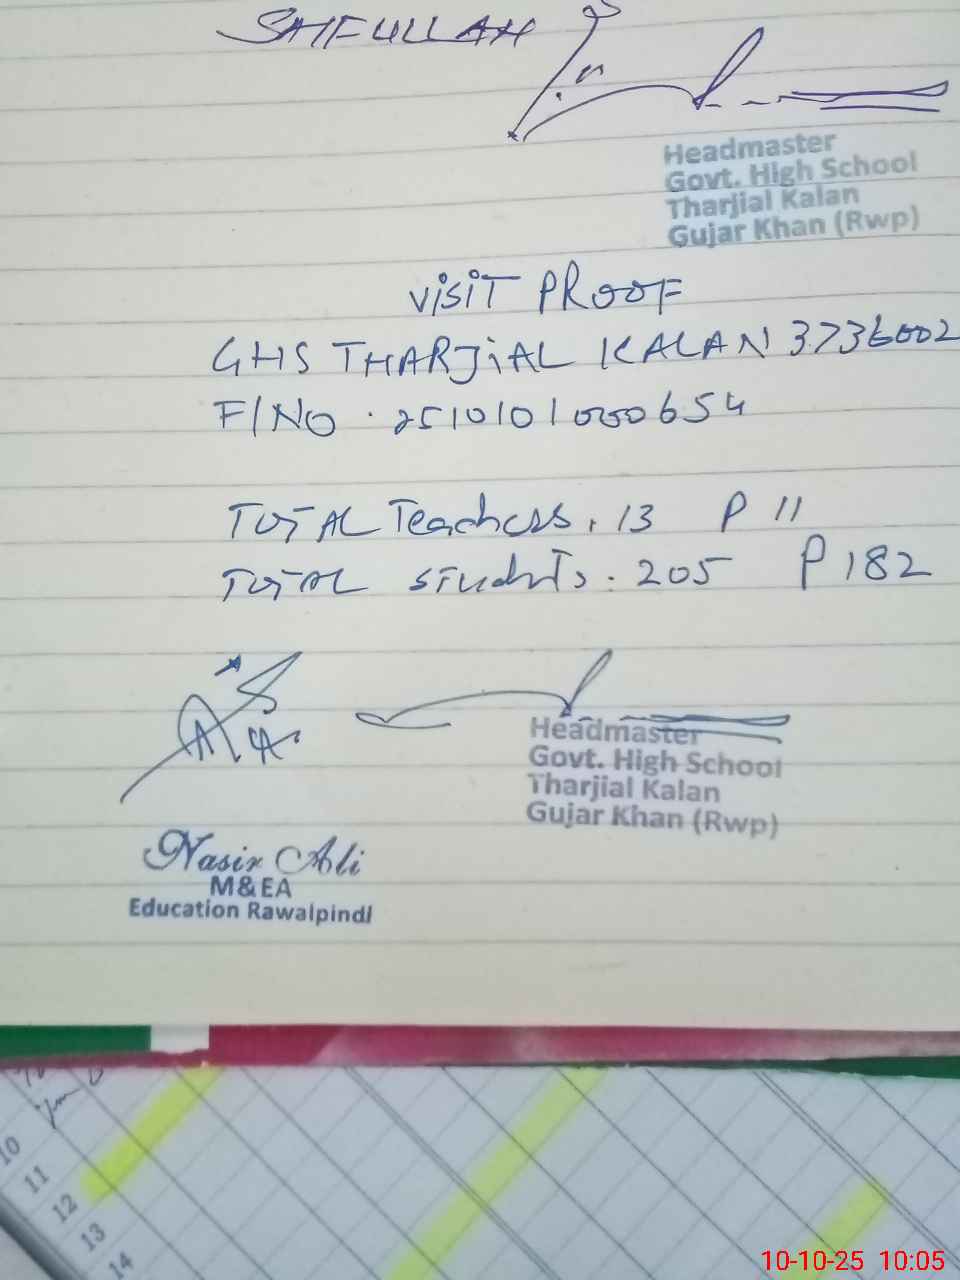 SAIFULLAH
Headmaster
Govt. High School
Tharjial Kalan
Gujar Khan (Rwp)
VISIT PROOF
GHS THARJIAL KALAN 3736002
F/NO . 2510101000654
TOTAL Teachers. 13 P 11
TOTAL students. 205 P 182
Headmaster
Govt. High School
Tharjial Kalan
Gujar Khan (Rwp)
Nasir Ali
M&EA
Education Rawalpindi
10
11
12
13
14
10-10-25 10:05